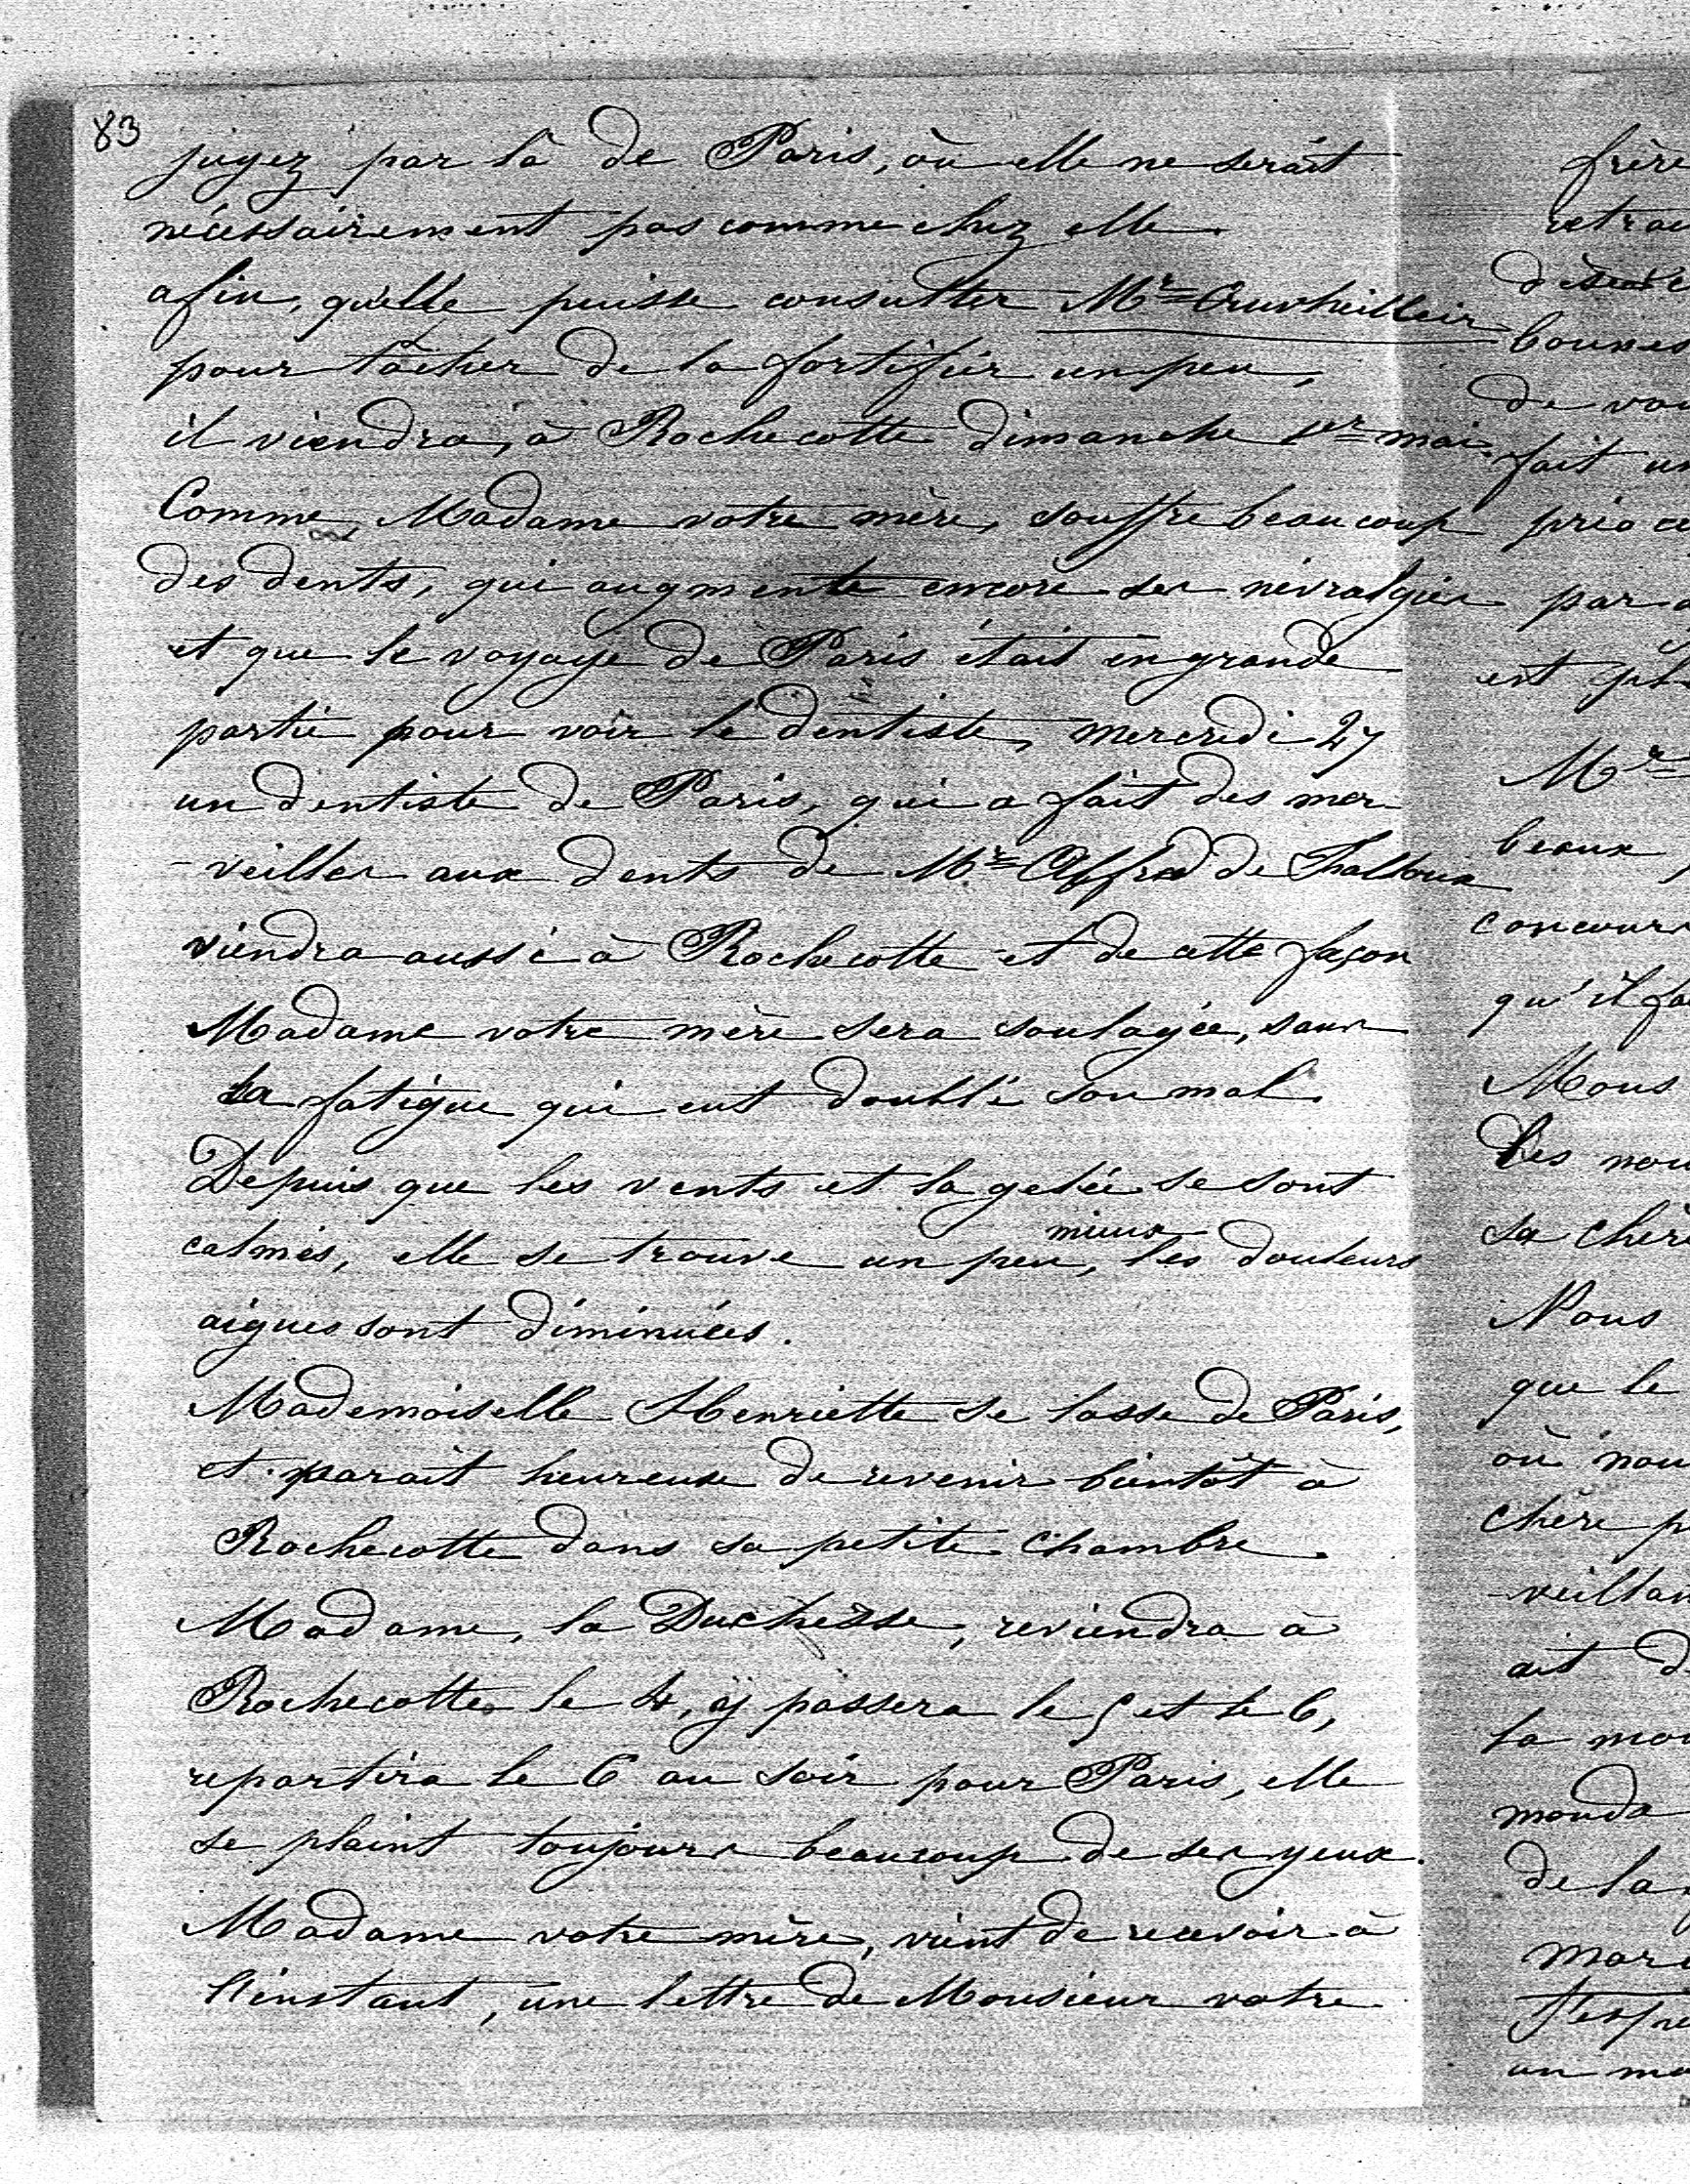 83
jugez par là de Paris, où elle ne serait
nécessairement pas comme chez elle.
afin, qu'elle puisse consulter Mr= Cruvheilleir
pour tâcher de la fortifier un peu,
il viendra, à Rochecotte dimanche 1er= mai.
Comme, Madame votre mère, souffre beaucoup
des dents, qui augmente encore ses névralgies
et que le voyage de Paris était en grande
partie pour voir le dentiste, mercredi 27
un dentiste de Paris, qui a fait des mer-
-veilles aux dents de Mr= Alfred de Thalloux
viendra aussi à Rochecotte et de cette façon
Madame votre mère sera soulagée, sans
la fatigue qui eut doublé son mal.
Depuis que les vents et la gelée se sont
calmés, elle se trouve un peu mieux, les douleurs
aigues sont diminuées.
Mademoiselle Henriette se lasse de Paris,
et parait heureuse de revenir bientôt à
Rochecotte dans sa petite chambre.
Madame, la Duchesse, reviendra à
Rochecotte le 4, y passera le 5 et le 6,
repartira le 6 au soir pour Paris, elle
se plaint toujours beaucoup de ses yeux.
Madame votre mère, vient de recevoir à
l'instant, une lettre de Monsieur votre
frère
bonnes
de
fait
par
est
Mr=
beaux
qu'il
sa
Nous
que le
où
chère
ait
la
de la
un